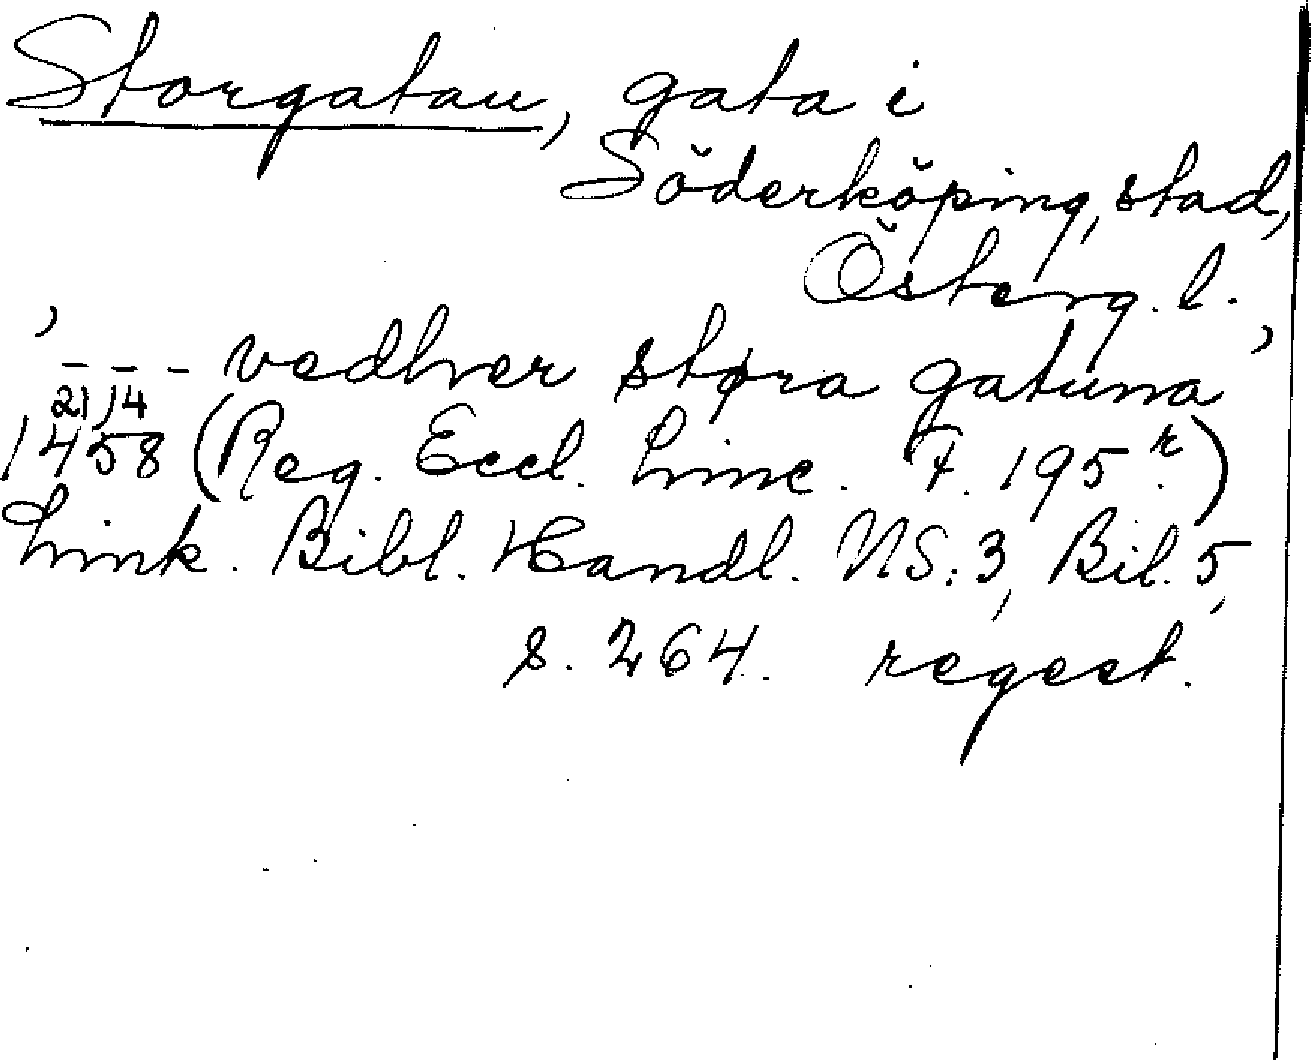 Storgatan, gata i
Söderköping, stad,
Österg. l.
’--- vedhver støra gatuna’
21/4
1458 (Reg. Eccl. Linc. F. 195 r.)
Link. Bibl. Handl. NS: 3, Bil. 5,
s. 264. regest.